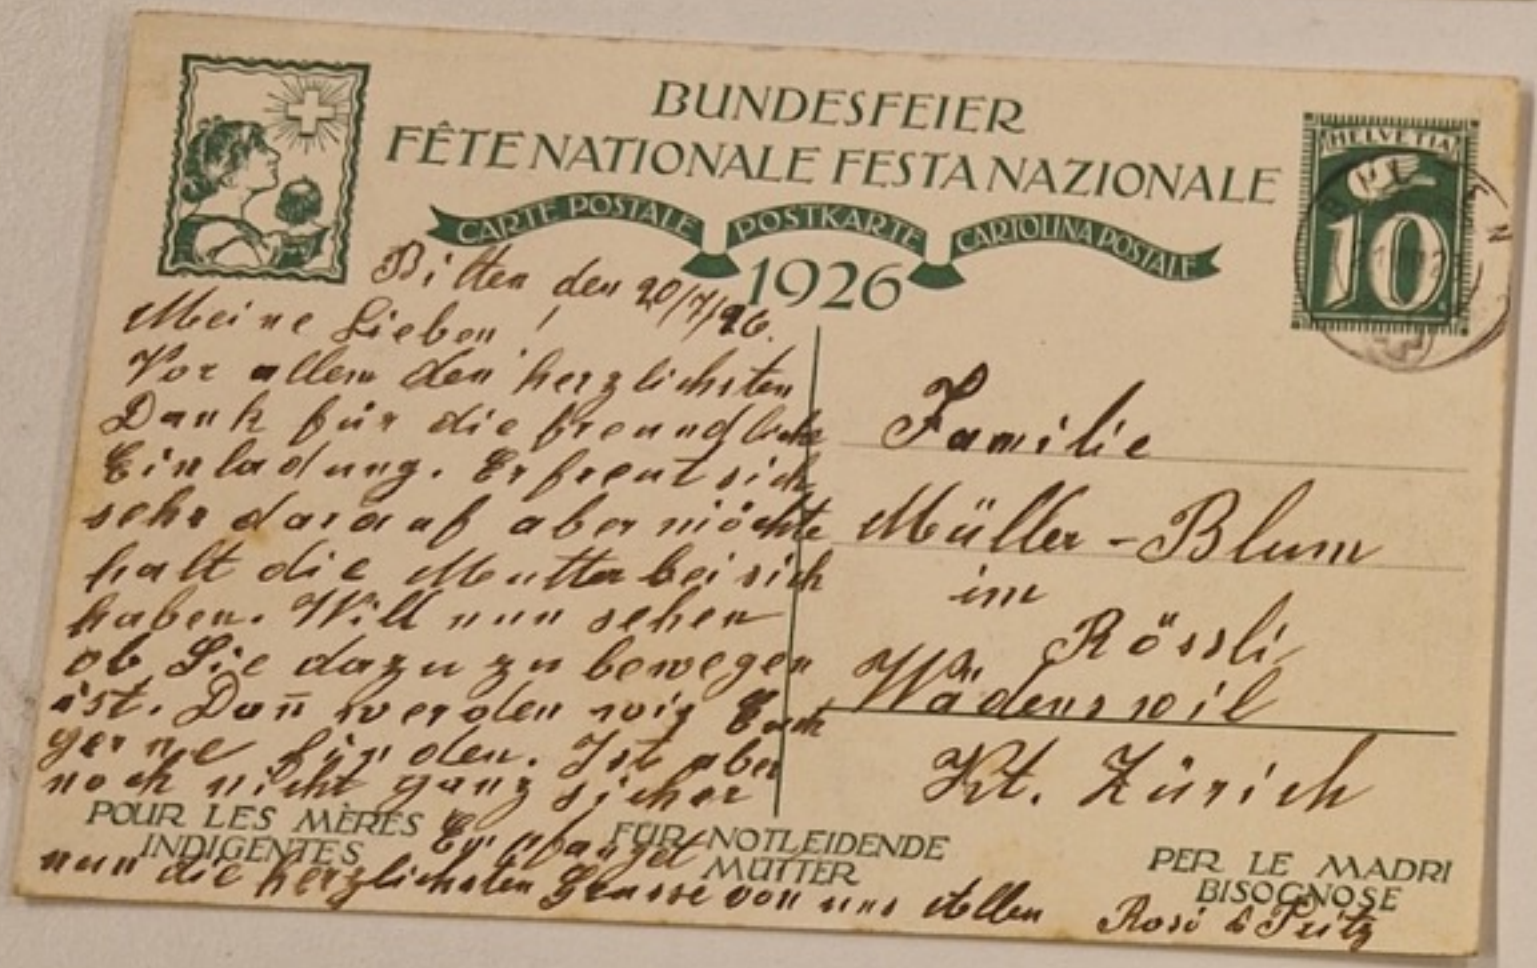 BUNDESFEIER
FÊTE NATIONALE FESTA NAZIONALE
CARTE POSTALE POSTKARTE CARTOLINA POSTALE
1926
HELVETIA
10
Bilten den 20/7/26.
Meine Lieben!
Vor allem den herzlichsten
Dank für die freundliche
Einladung. Er freut sich
sehr darauf aber möchte
halt die Mutter bei sich
haben. Will nun sehen
ob Sie dazu zu bewegen
ist. Dan̄ werden wir Euch
gerne finden. Ist aber
noch nicht ganz sicher
Empfanget
nun die herzlichsten Grüsse von uns Allen Rosi & Fritz
Familie
Müller-Blum
im
Rössli
Wädenswil
Kt. Zürich
POUR LES MÈRES
INDIGENTES
FÜR NOTLEIDENDE
MÜTTER
PER LE MADRI
BISOGNOSE